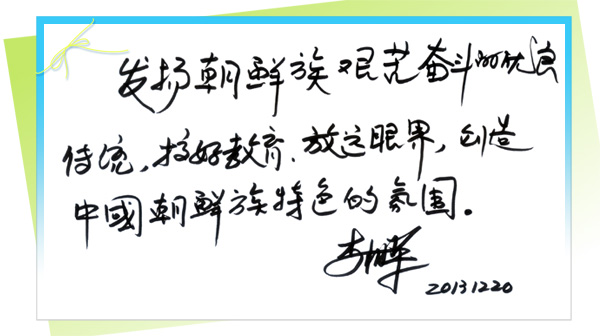 发扬朝鲜族艰苦奋斗的优良
传统,搞好教育、放远眼界,创造
中國朝鲜族特色的氛围。
20131220